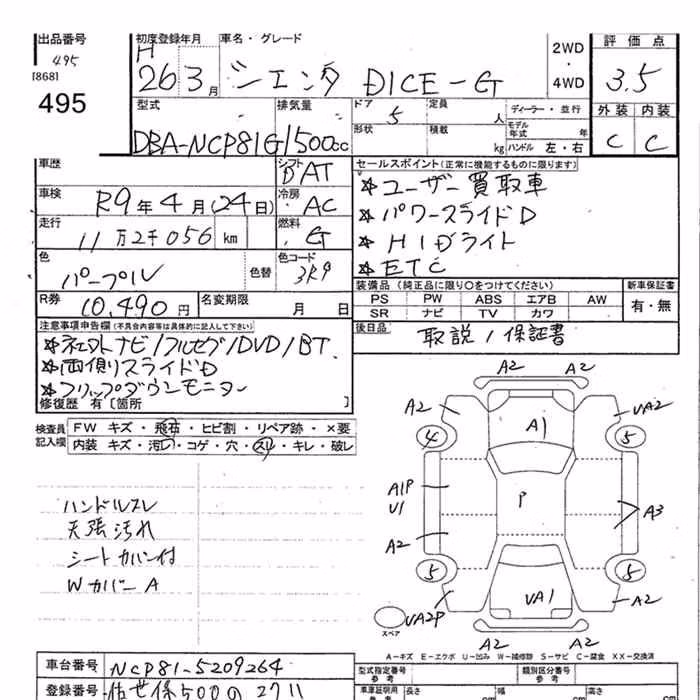 出品番号 初度登録年月 車名・グレード 2WD・4WD 評価点
495 H 26 3月 シエンタ DICE-G 3.5
[868]
495
型式 排気量 ドア 5 定員 人 ディーラー・並行 外装 内装
DBA-NCP81G 1500cc 形状 積載 kg モデル年式 年 ハンドル 左・右 C C
車歴 シフト AT セールスポイント(正常に機能するものに限ります)
車検 R9年4月(24日) 冷房 AC ☆ユーザー買取車
走行 11万2千056km 燃料 G ☆パワースライドD
☆HIDライト
色 パープル 色替 色コード 3R9 ☆ETC
装備品(純正品に限り○をつけてください) 新車保証書
PS PW ABS エアB AW 有・無
SR ナビ TV カワ
R券 10,490円 名変期限 月 日
後日品 取説/保証書
注意事項申告欄(不具合内容等は具体的に記入して下さい)
ナビ/フルセグ/DVD/BT
☆両側リスライドD
☆フリップダウンモニター
修復歴 有[箇所 ]
検査員記入欄 FW キズ・飛石・ヒビ割・リペア跡・×要
内装 キズ・汚レ・コゲ・穴・スレ・キレ・破レ
ハンドルスレ
天張汚れ
シートカバー付
Wカバー A
A2 A2
A2 VA2
4 A1 5
A1P
U1 P A3
A2
5 5
VA1
VA2P A2
スペア
A2 A2
A-キズ E-エクボ U-凹み W-補修跡 S-サビ C-腐食 XX-交換済
車台番号 NCP81-5209264 型式指定番号 参考 類別区分番号 参考
登録番号 500 2711 車庫証明用 参考 長さ cm 幅 cm 高さ cm